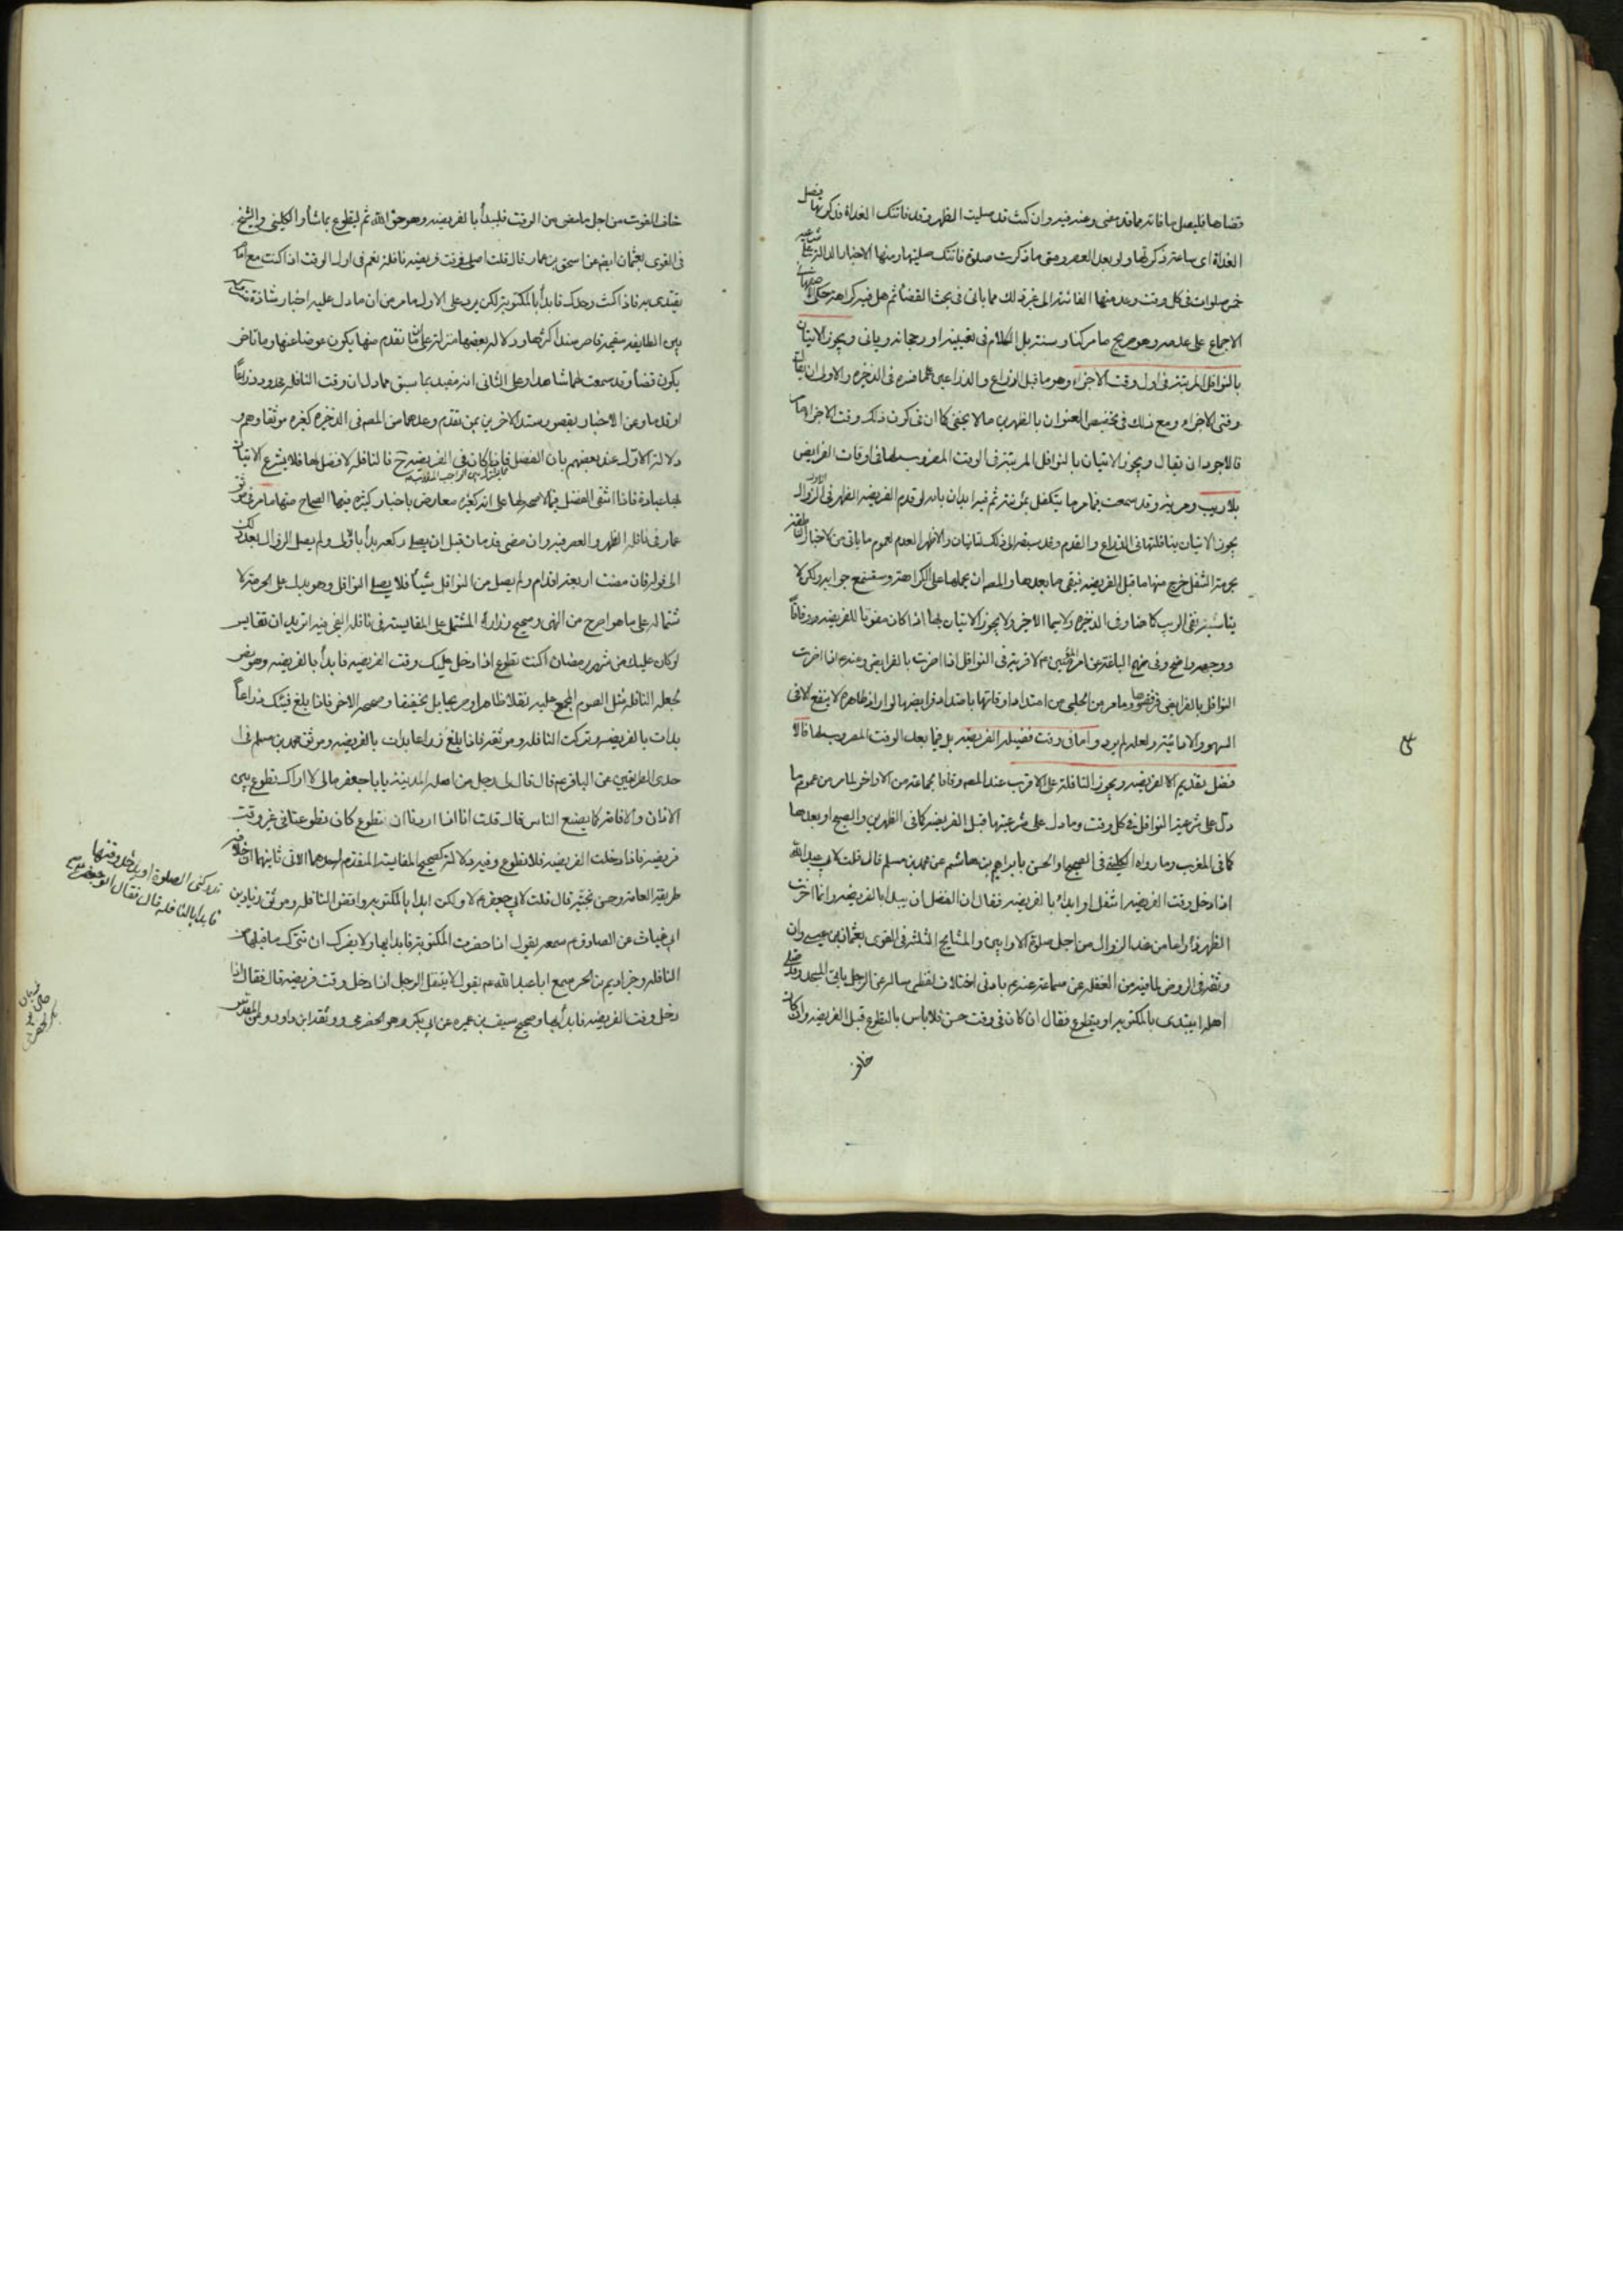 قضاها فليصل ما فاته مما قد مضى وعنه فيه وان كنت قد صليت الظهر وقد فاتتك الغداة فذكرتها فصل
الغداة اى ساعة ذكرتها ولو بعد العصر ومتى ما ذكرت صلوة فاتتك صليتها ومنها الاخبار الدالة على
خمس صلوات فى كل وقت وعد منها الفائتة الى غير ذلك مما ياتى فى بحث القضا ثم هل فيه كراهة حكى
الاجماع على عدمه وهو صريح ما مر كتابا وسنة بل الكلام فى تعيينه او رجحانه وياتى ويجوز الاتيان
بالنوافل المرتبة فى اول وقت الاجزاء وهو ما قبل الذراع والذراعين كما فسره فى الذخيره والاولى
وقتى الاجزاء ومع ذلك فى تخصيص العنوان بالظهرين ما لا يخفى كما ان فى كون ذلك وقت الاجزاء
فالاجود ان يقال ويجوز الاتيان بالنوافل المرتبة فى الوقت المضروب لها فى اوقات الفرايض
بلا ريب ومرية وقد سمعت فيما مر ما يتكفل ثم فيه ايذان بانه لو قدم الفريضه الظهر فى الزوال
يجوز الاتيان بنافلتها فى الذراع والقدم وقد سبقه الى ذلك والاظهر العدم لعموم ما ياتى من الاخبار
بحرمة التنفل خرج منها ما قبل الفريضه فبقى ما بعدها والمصه ان يحملها على الكراهة وستسمع جوابه ولكن لا
نفى الريب كما هنا وفى الذخيره ولا سيما الاخير ولا يجوز الاتيان بها اذا كان مفوتا للفريضه وفاقاً
ووجهه واضح وفى نهج البلاغة عن امير المؤمنين ع لا قربة فى النوافل اذا اضرت بالفرايض وعنه ع اذا اضرت
النوافل بالفرايض فارفضوها وما مر من الحلبى من امتداد اوقاتها بامتداد فرايضها لو اراد ظاهره لا ينفع الا فى
السهو والا مانيته ولعله لم يرده واما فى وقت فضيلة الفريضه بل فيما بعد الوقت المضروب لها فالا
فضل تقديم الفريضه ويجوز النافلة على الاقرب عند المصه وفاقا لجماعة من الاواخر لما مر من عموم ما
دل على شرعية النوافل فى كل وقت وما دل على شرعيتها قبل الفريضه كما فى الظهرين والصبح او بعدها
كما فى المغرب وما رواه الكلينى فى الصحيح او الحسن بابراهيم بن هاشم عن محمد بن مسلم قال قلت لابى عبد الله
اذا دخل وقت الفريضه اتنفل او ابدأ بالفريضه فقال ان الفضل ان يبدا بالفريضه وانما اخرت
الظهر ذراعا من عند الزوال من اجل صلوة الاوابين والمشايخ الثلثة فى القوى بعثمان بن عيسى وان
وثقه فى الروض لما فيه من الغفلة عن سماعة عنه ع بادنى اختلاف لفظى سالته عن الرجل ياتى المسجد وقد صلى
اهله ايبتدى بالمكتوبه او يتطوع فقال ان كان فى وقت حسن فلا باس بالتطوع قبل الفريضه وان كان
خاف
خاف الفوت من اجل ما مضى من الوقت فليبدأ بالفريضه وهو حق الله ثم ليتطوع بما شاء والكلينى والشيخ
فى القوى بعثمان ايضا عن اسحق بن عمار قال قلت اصلى فى وقت فريضة نافلة نعم فى اول الوقت اذا كنت مع امام
يقتدى به فاذا كنت وحدك فابدأ بالمكتوبة لكن يرد على الاول ما مر من ان ما دل عليه اخبار شاذة
بين الطايفه سقيمة قاصر سندا كثرها ودلالة بعضها منزلة على ان ما تقدم منها يكون عوضا عنها وما تاخر
يكون قضاء وقد سمعت لهما شاهدا وعلى الثانى انه مقيد بما سبق مما دل ان وقت النافلة محدود ذراعاً
او قدما وعن الاخبار بقصور سند الاخرين بمن تقدم وعدهما من المصه فى الذخيره كغيره موثقا وهم و
دلالة الاول عند بعضهم بان الفضل فاذا كان فى الفريضه ح فالنافلة لا فضل لها فلا يشرع الاتيان
بها عبادة فاذا انتفى الفضل فيها لا صحة لها على انه كغيره معارض باخبار كثيره فيها الصحاح منها ما مر فى موثق
عمار فى نافلة الظهر والعصر فيه وان مضى قدمان قبل ان يصلى ركعه بدأ بالاولى ولم يصل الزوال الا بعد ذلك
الى قوله فان مضت اربعة اقدام ولم يصل من النوافل شيئاً فلا يصلى النوافل وهو يدل على الحرمة لا
شتماله على ما هو اصرح من النهى وصحيح زرارة المشتمل على المقايسة فى نافلة الفجر فيه اتريد ان تقايس
لو كان عليك من شهر رمضان اكنت تطوع اذا دخل عليك وقت الفريضه فابدأ بالفريضه وهو نص
لجعله النافلة مثل الصوم المجمع عليه نقلا ظاهرا وصريحا بل تحقيقا وصحيحه الاخر فاذا بلغ فيئك ذراعاً
بدات بالفريضه وتركت النافلة وموثقه فاذا بلغ ذراعا بدات بالفريضه وموثق محمد بن مسلم فى ا
حدى الطريقين عن الباقر ع قال قال لى رجل من اهل المدينة يا با جعفر مالى لا اراك تطوع بين
الاذان والاقامة كما يصنع الناس قال قلت انا اذا اردنا ان نتطوع كان تطوعنا فى غير وقت
فريضه فاذا دخلت الفريضه فلا تطوع وفيه دلالة كصحيح المقايسة المتقدم
طريقة العامه وحسن نجية قال قلت لابى جعفر ع لا ولكن ابدأ بالمكتوبه واقض النافلة وموثق زياد بن
ابى غياث عن الصادق ع سمعه يقول اذا حضرت المكتوبة فابدأ بها ولا يضرك ان تترك ما قبلها من
النافلة وخبر اديم بن الحر سمع ابا عبد الله ع يقول لا يتنفل الرجل اذا دخل وقت فريضه قال فقال اذا
دخل وقت الفريضه فابدأ بها وصحيح سيف بن عميره عن ابى بكر وهو الحضرمى ووثقه ابن داود
تدركنى الصلوة او يدخل وقتها
فابدا بالنافلة قال فقال ابو جعفر ع